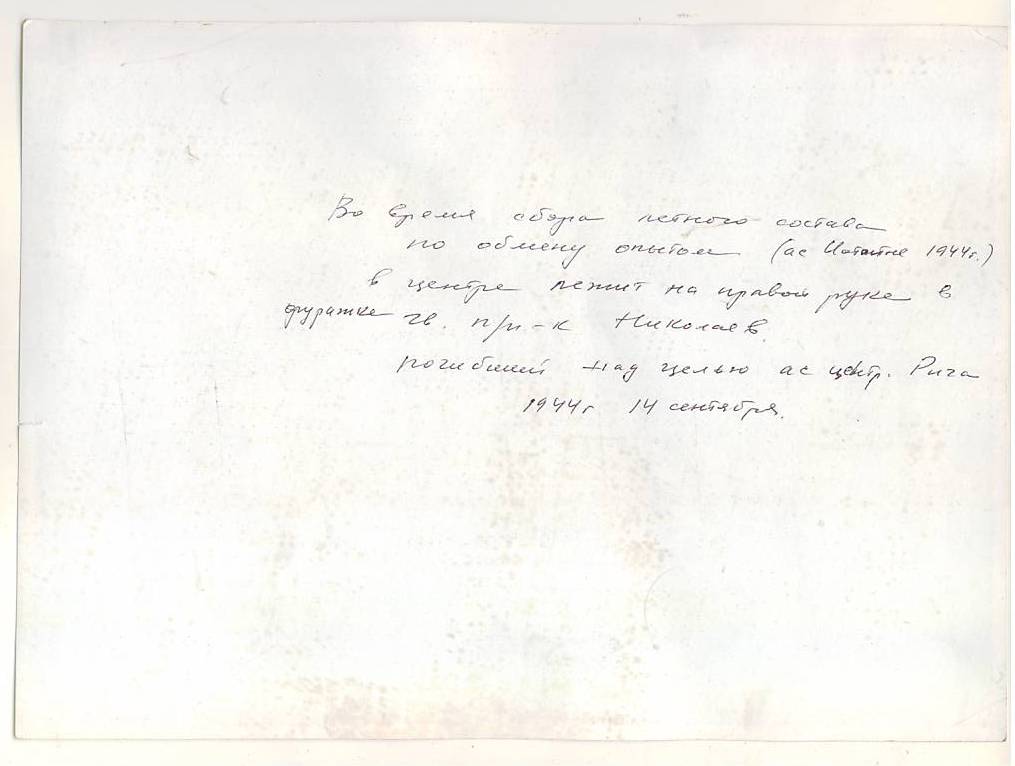 Во время сбора летного состава
по обмену опытом (ас 1944г.)
в центре лежит на правой руке в
фуражке гв. п/п-к Николаев.
погибший над целью ас центр. Рига
1944г 14 сентября.